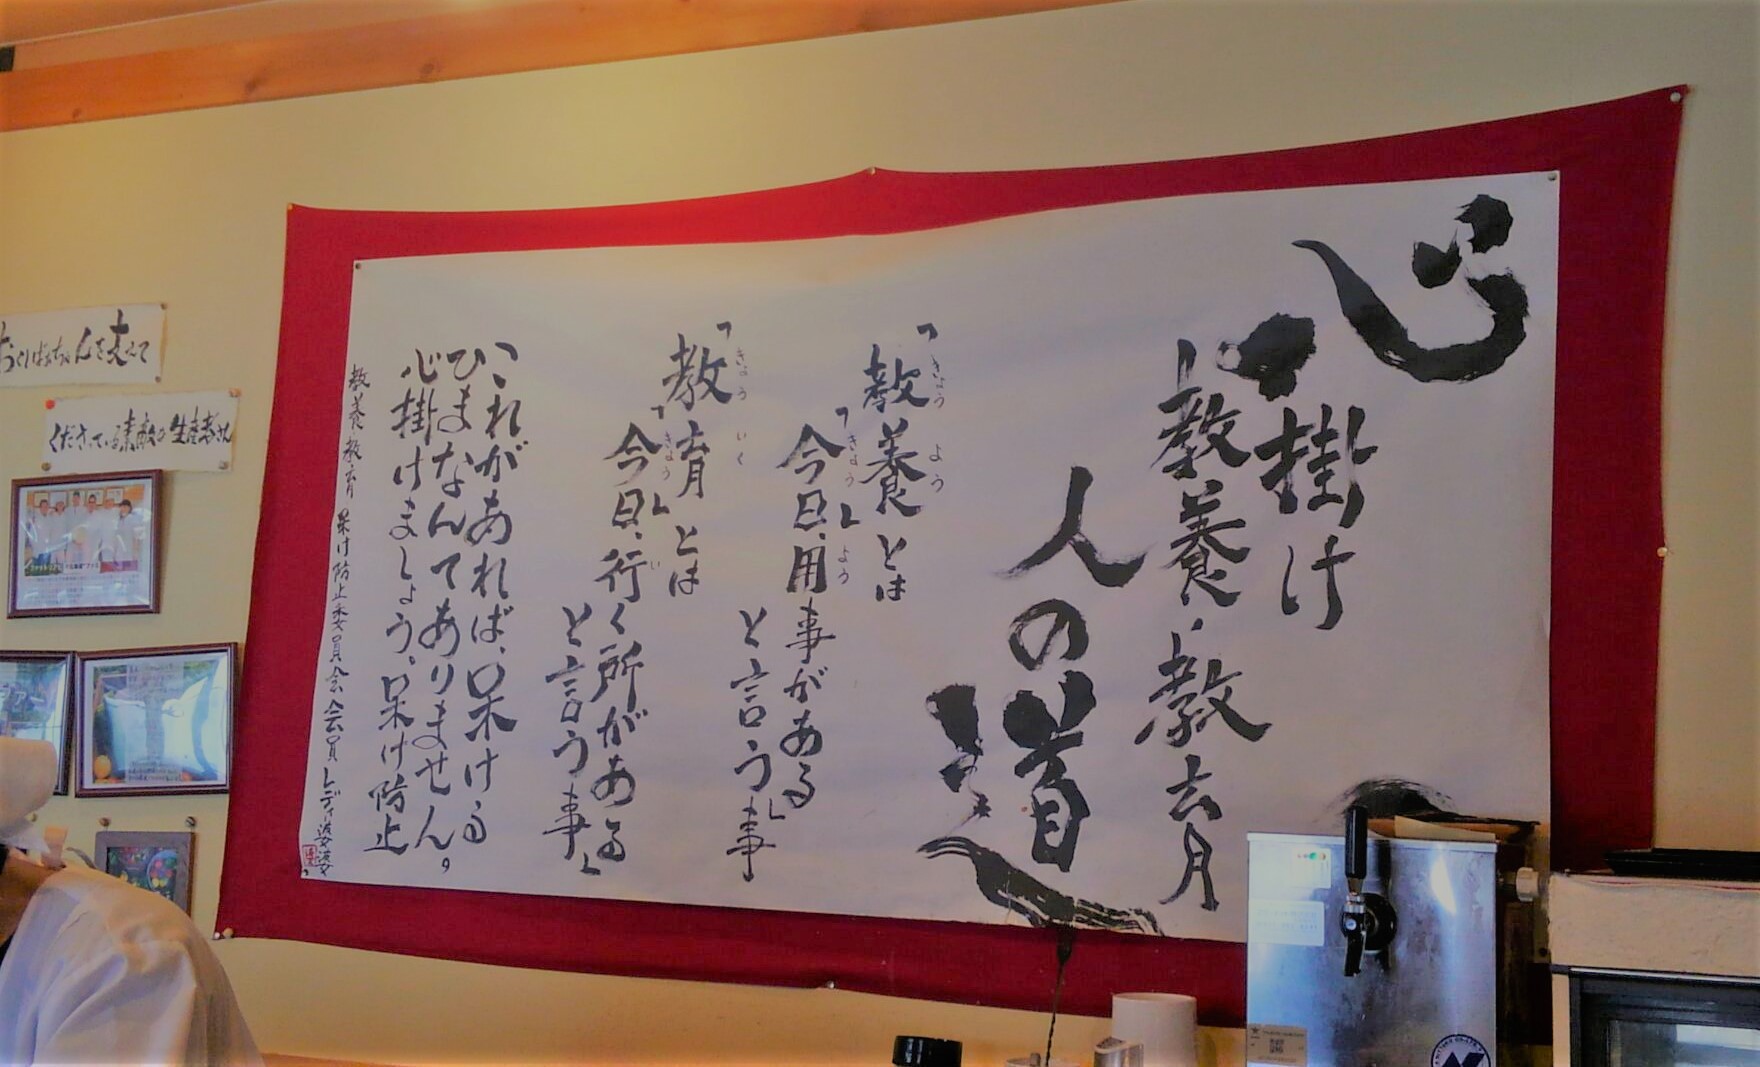 心掛け
教養・教育
人の道
「教養とは
「今日」用事がある
と言う」事
「教育とは
「今日」行く所がある
と言う事」
これがあれば、呆ける
ひまなんてありません。
心掛けましょう、呆け防止
教養教育 呆け防止委員会会員 レディ婆婆
きょう よう
きょう よう
きょう いく
きょう い
くださっている素敵な生産者さん